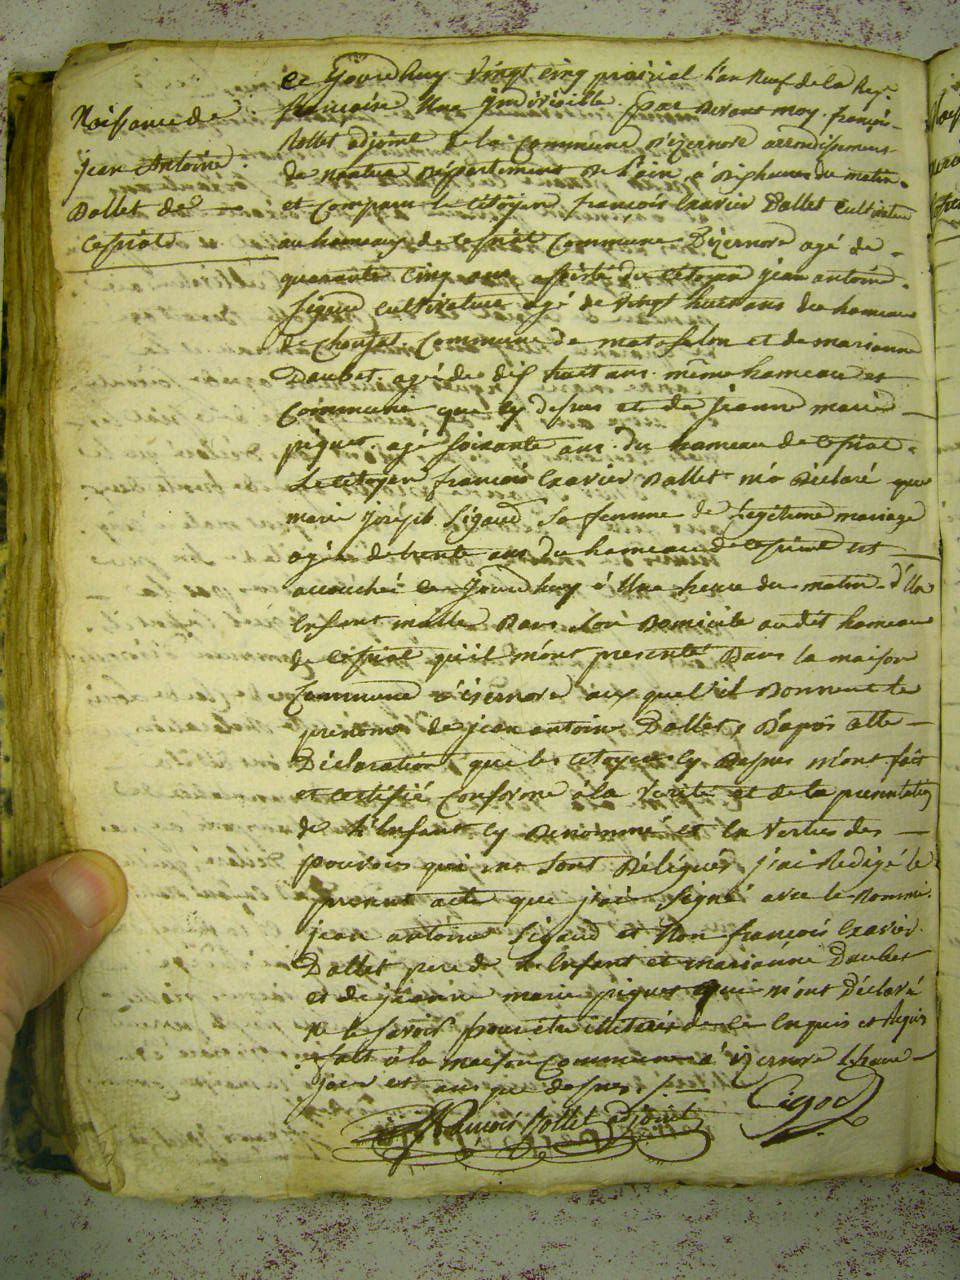 Naissance de
jean Antoine
Dallet de
Cessiat
Ce Jourd huy vingt cinq prairial l'an Neuf de la Rep.
francaise Une Indivisible. par devant moy françois
Rollet adjoint de la Commune d'izernore arrondissement
de nantua Département De l'ain, à dix heures du matin.
et Comparu le Citoyen françois Exavier Dallet Cultivateur
au hameaux de Cessiat Commune Dizernore agé de
quarante Cinq ans assisté du Citoyen jean antoine
Sigaud Cultivateur agé de vingt huit ans du hameau
de Chougat Commune de matafelon et de marianne
Daubet agé de dix huit ans meme hameau et
Commune que Cy dessus et de jeanne marie
piquet agé soixante ans du hameau de Cessiat.
Le Citoyen françois Exavier Dallet m'a Déclaré que
marie Joseph Sigaud sa femme de Legitime mariage
agée de trente ans du hameau de Cessiat est
accouché Ce Jourd huy à Une heure du matin d'Un
Enfant malle Dans son Domicile audit hameau
de Cessiat qu'il m'ont presenté Dans la maison
Commune d'izernore au quel il Donnent le
prénoms de jean antoine Dallet, D'apprès
Déclaration que les Citoyen Cy dessus m'ont fait
et Certifié Conforme à la verité et de la presentation
de L'Enfant Cy Denommé et En vertu des
pouvoirs qui me sont Délégués, j'ai Redigé le
present acte que j'ai signé avec le Nommé
jean antoine Sigaud et Non françois Exavier
Dallet pere de L'Enfant et marianne Daubet
et de jeanne marie piquet qui m'ont Déclaré
ne le savoir pour être illiterés de Ce Enquis et Requis
fait à la maison Commune d'izernore
jour et ans que dessus
francois Rollet adjoint Sigod